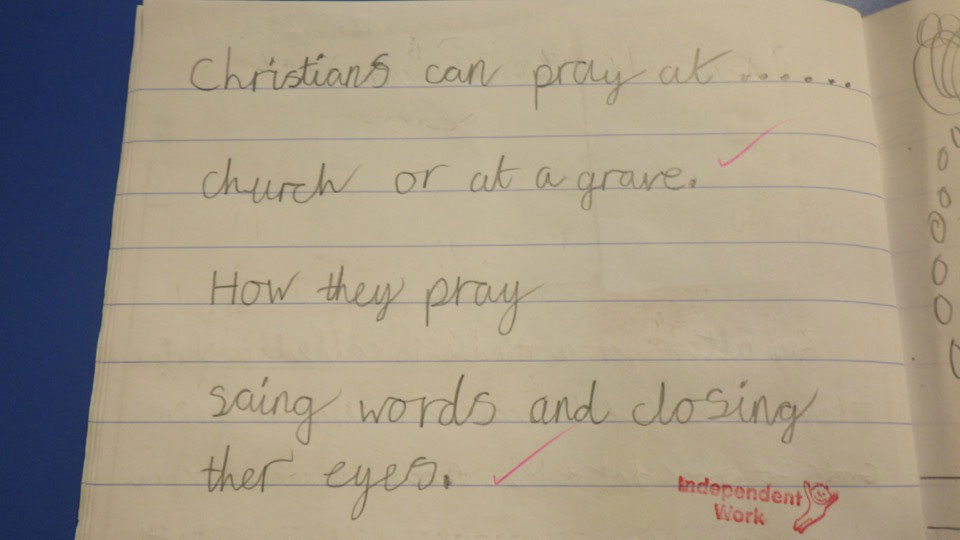 Christians can pray at ......
church or at a grave.
How they pray
saing words and closing
ther eyes.
Independent
Work